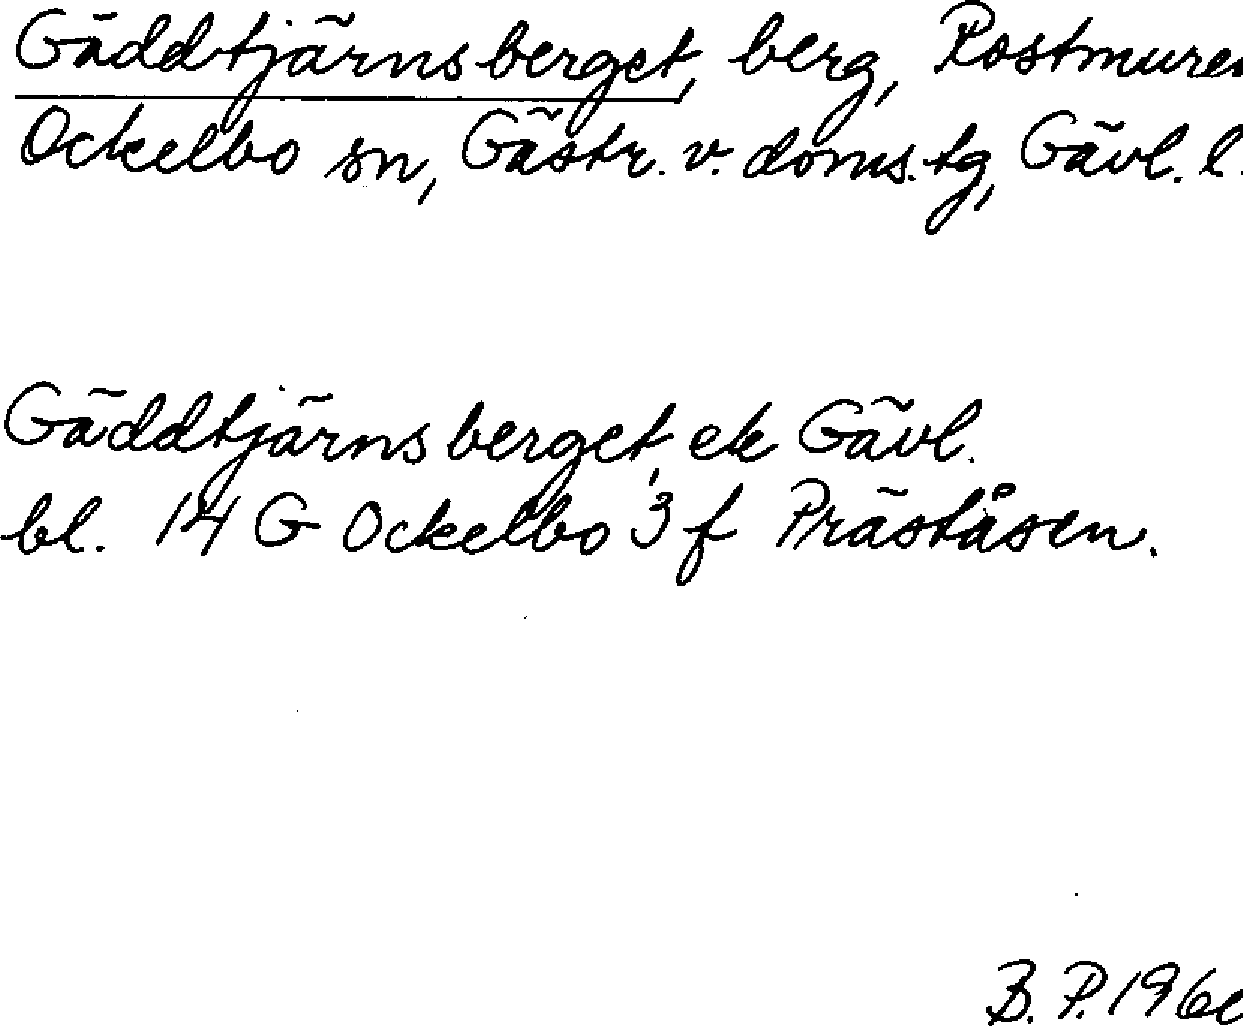 Gäddtjärnsberget, berg, Rostmuren
Ockelbo sn, Gästr. v. doms. tg, Gävl. l.
Gäddtjärnsberget, ek Gävl.
bl. 14 G Ockelbo 3 f Präståsen.
B. P.